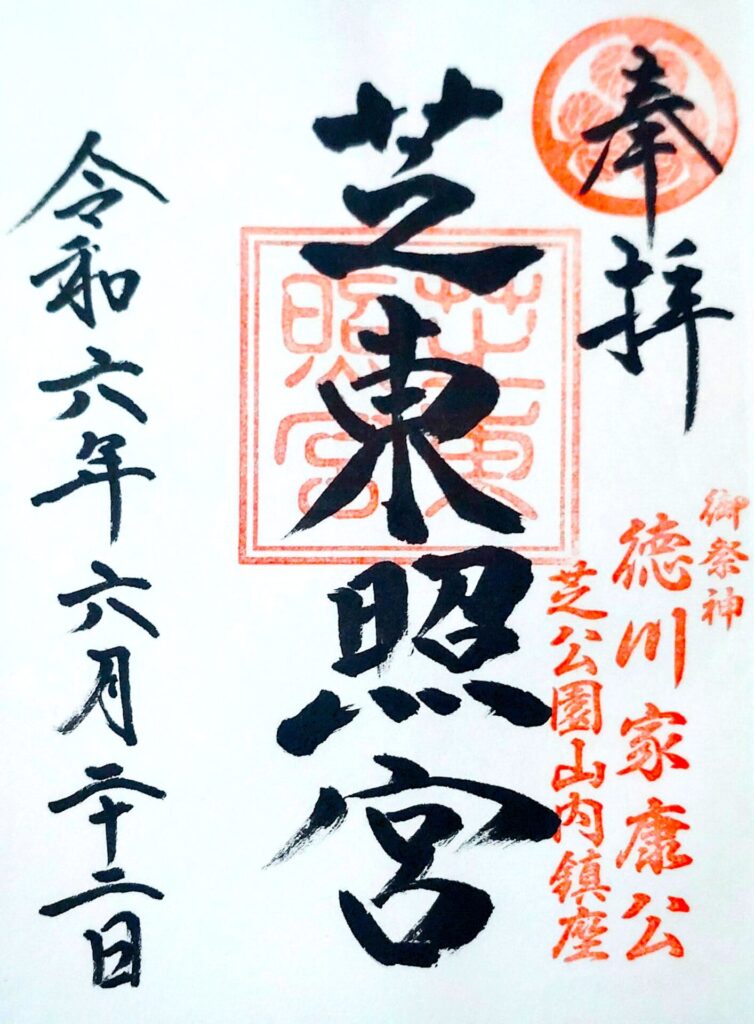 奉拝
御祭神
徳川家康公
芝公園山内鎮座
芝東照宮
芝東
照宮
令和六年六月二十二日